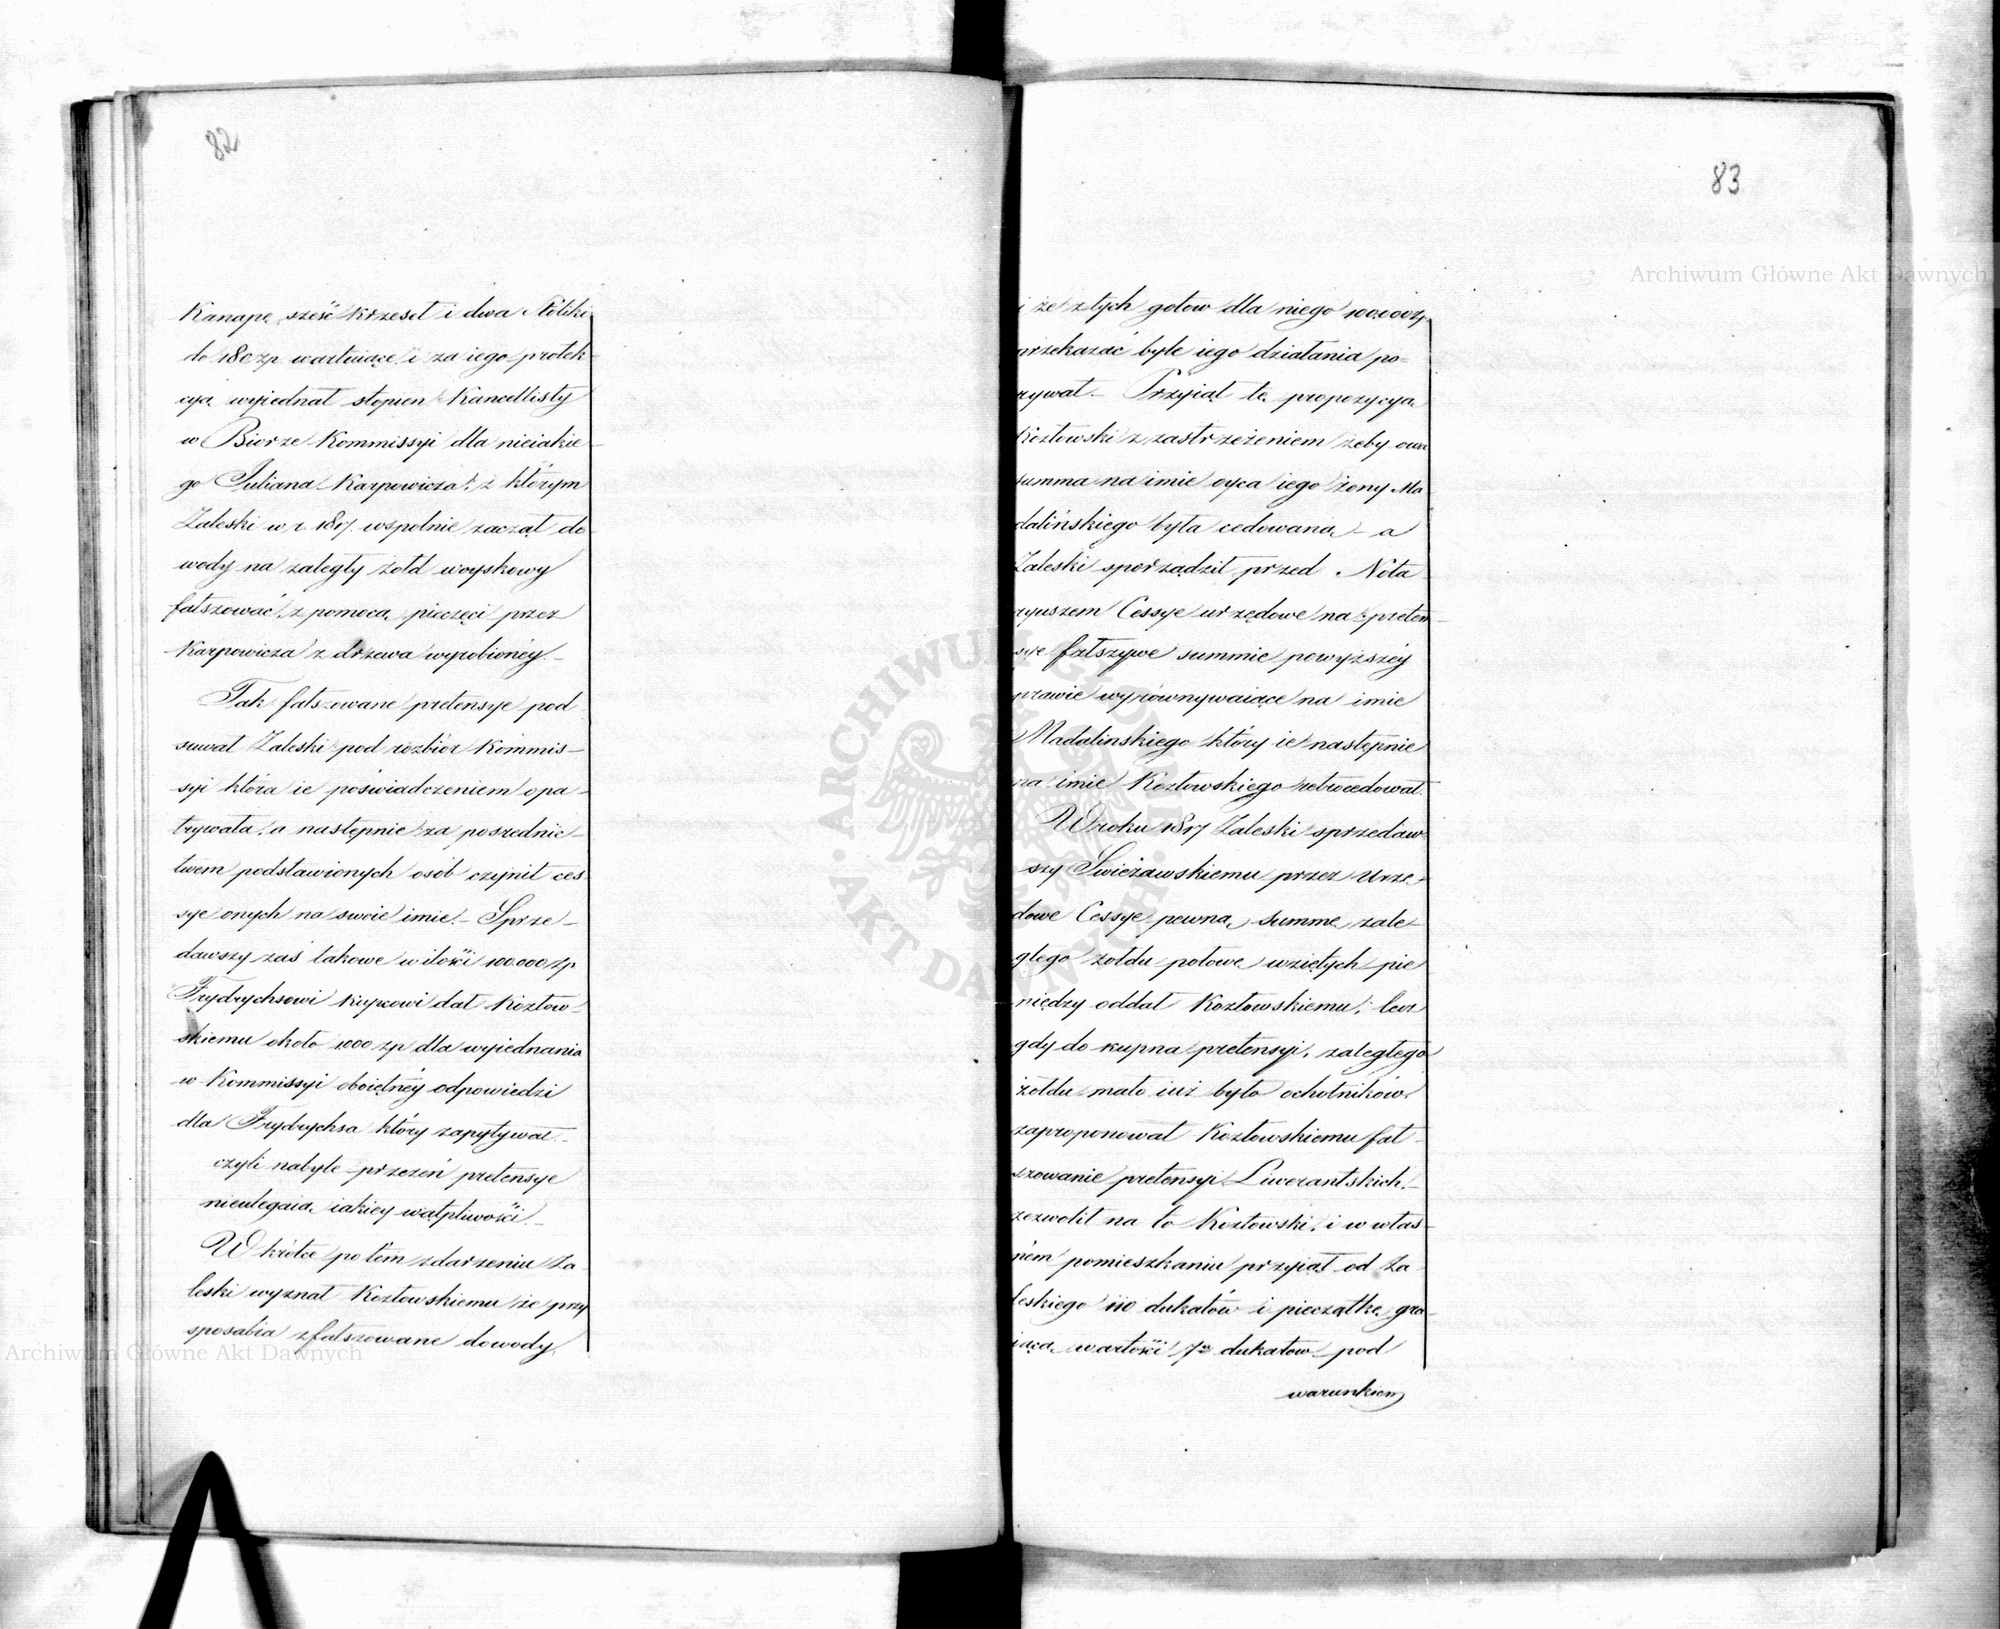 82
Kanapę sześć krzeseł i dwa Stoliki
do 180 zp. wartuiące i za iego protek-
cyą wyiednał stopien Kancellisty
w Biorze Kommissyi dla nieiakie-
go Juliana Karpowicza, z którym
Zaleski w r. 1817. wspolnie zaczął do-
wody na zaległy żołd woyskowy
fałszować, z pomocą pieczęci przez
Karpowicza z drzewa wyrobionéy. -
Tak fałszowane pretensye pod
suwał Zaleski pod rozbiór Kommis-
syi która ie poświadczeniem opa-
trywała, a następnie za poszednic-
twem podstawionych osób czynił ces-
sye onych na swoie imie. - Sprze-
dawszy zaś takowe w ilości 100.000 zp
Frydrychsowi kupcowi dał Kozłow-
skiemu około 1000 zp dla wyiednania
w Kommissyi oboiętnéy odpowiedzi
dla Frydrychsa który zapytywał -
czyli nabyte przezeń pretensye
nieulegaią iakiey wątpliwości. -
W krótce po tém zdarzeniu Za-
leski wyznał Kozłowskiemu że przy
sposabia zfałszowane dowody
83
i że z tych gotow dla niego 100.000 zp.
przekazać byle iego działania po-
rywał - Przyiął tę propozycyą
Kozłowski z zastrzeżeniem żeby owa
summa na imie oyca iego żony Ma
dalińskiego była cedowaną - a
Zaleski sporządził przed Nota-
ryuszem Cessye urzędowe na preten-
sye fałszywe summie powyższéy
prawie wyrównywaiące na imie
Madalinskiego który ie następnie
na imie Kozłowskiego retrocedował.
W roku 1817 Zaleski sprzedaw
szy Swieżawskiemu przez Urzę-
dowe Cessye pewną summę zale-
głego żołdu połowę wziętych pie
niędzy oddał Kozłowskiemu, lecz
gdy do kupna pretensyi, zaległego
żołdu mało iuż było ochotników,
zaproponował Kozłowskiemu fał-
szowanie pretensyi Liwerantskich. -
zezwolił na to Kozłowski, i w włas-
ném pomieszkaniu przyiął od Za-
leskiego 110 dukatów i pieczątkę gra-
iącą wartości 7u dukatow pod
warunkiem